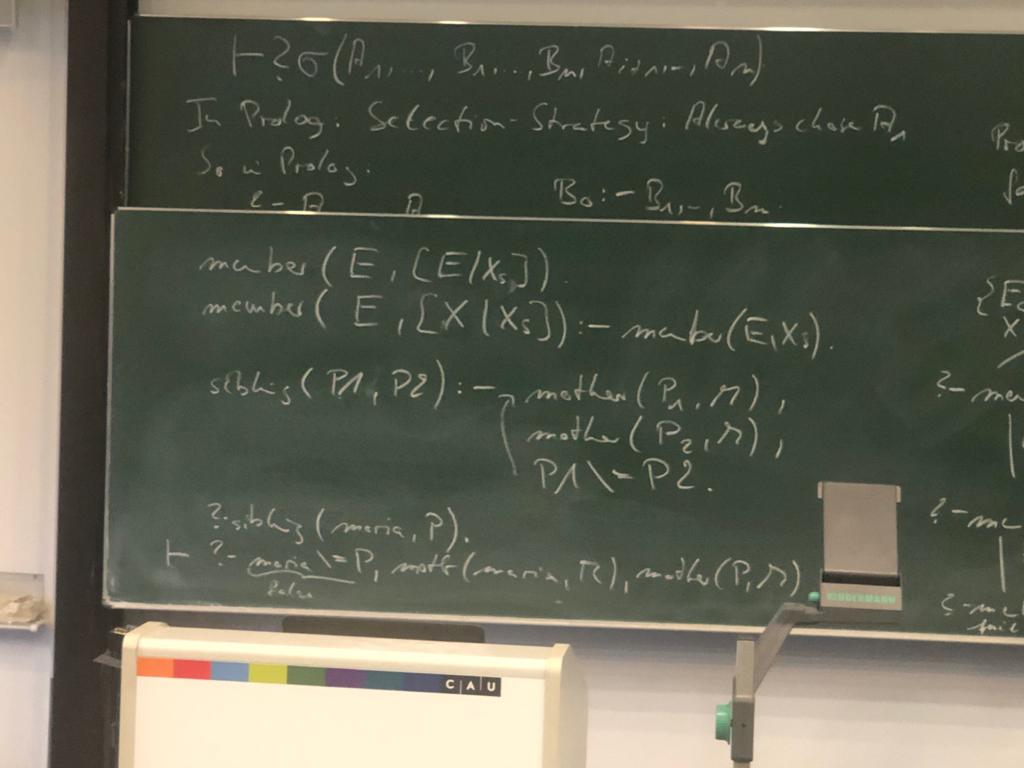 ⊢ ? σ(A1,..., B1,..., Bm, Ai+1,.., An)
In Prolog: Selection-Strategy: Always chose A1
So in Prolog:
?- A A
B0 :- B1,.., Bm.
member(E, [E|Xs]).
member(E, [X|Xs]) :- member(E,Xs).
sibling(P1, P2) :- mother(P1, M),
mother(P2, M),
P1 \= P2.
?-sibling(maria, P).
⊢ ?- maria \= P, mother(maria, M), mother(P, M)
false
{E
X
?- me
?- me
?- me
fail
KINDERMANN
C A U